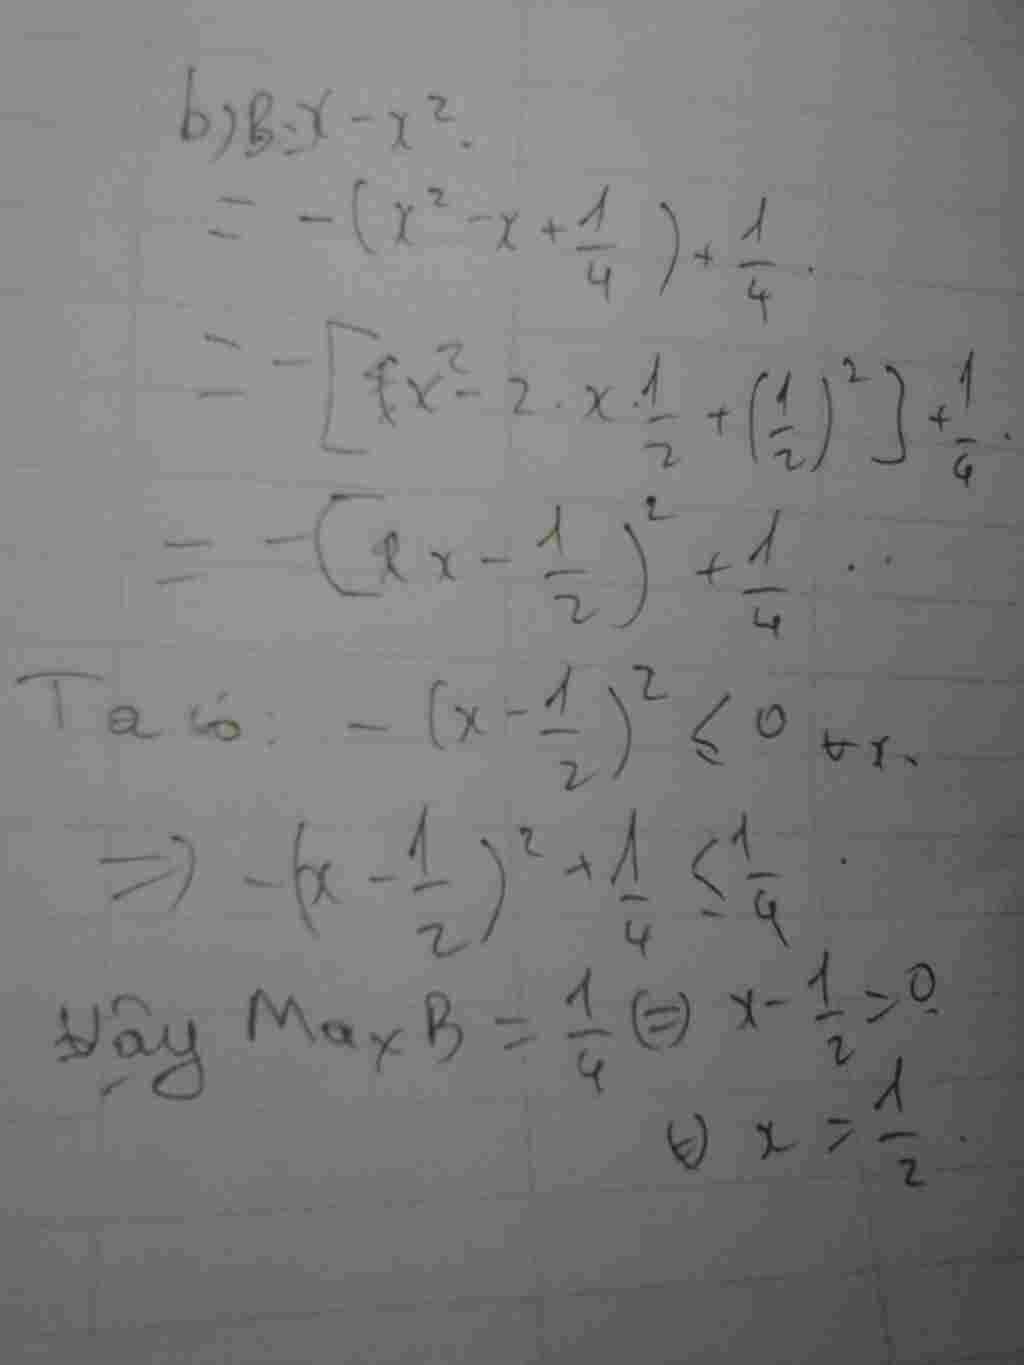 b) B = x - x².
= - (x² - x + 1/4) + 1/4.
= - [x² - 2 . x . 1/2 + (1/2)²] + 1/4.
= - (x - 1/2)² + 1/4 ..
Ta có: - (x - 1/2)² ≤ 0 ∀x.
=> - (x - 1/2)² + 1/4 ≤ 1/4.
Vậy Max B = 1/4 (=) x - 1/2 = 0
(=) x = 1/2.